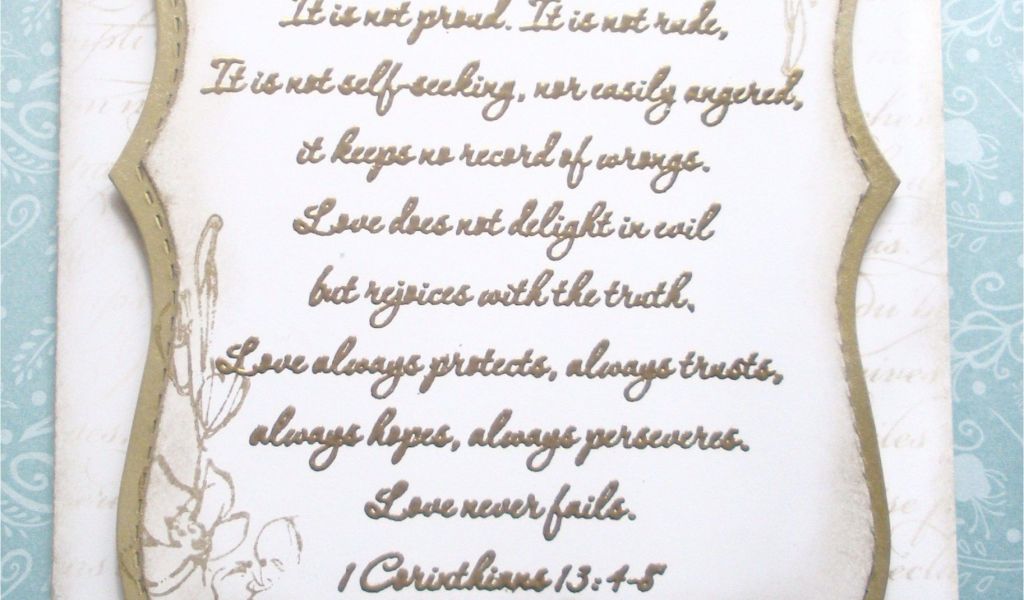 It is not proud. It is not rude,
It is not self-seeking, nor easily angered,
it keeps no record of wrongs.
Love does not delight in evil
but rejoices with the truth.
Love always protects, always trusts,
always hopes, always perseveres.
Love never fails.
1 Corinthians 13:4-8